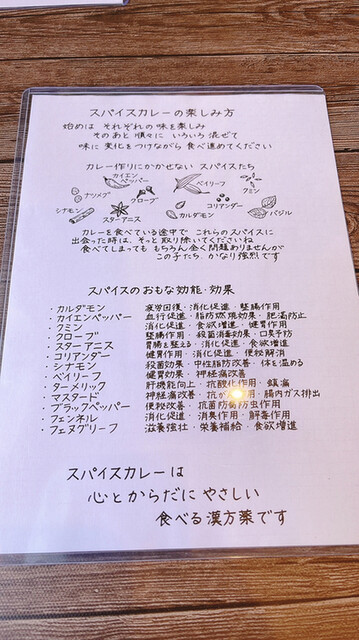 スパイスカレーの楽しみ方
始めは それぞれの味を楽しみ
そのあと 順々に いろいろ混ぜて
味に変化をつけながら 食べ進めてください
カレー作りにかかせない スパイスたち
カイエンペッパー
ベイリーフ
クミン
ナツメグ
クローブ
コリアンダー
シナモン
スターアニス
カルダモン
バジル
カレーを食べている途中で これらのスパイスに
出会った時は、そっと取り除いてくださいね
食べてしまっても もちろん全く問題ありませんが
この子たち、かなり強烈です
スパイスのおもな効能・効果
・カルダモン 疲労回復・消化促進・整腸作用
・カイエンペッパー 血行促進・脂肪燃焼効果・肥満防止
・クミン 消化促進・食欲増進・健胃作用
・クローブ 整腸作用・殺菌消毒効果・口臭予防
・スターアニス 胃腸を整える・消化促進・食欲増進
・コリアンダー 健胃作用・消化促進・便秘解消
・シナモン 殺菌効果・中性脂肪改善・体を温める
・ベイリーフ 健胃効果・神経痛改善
・ターメリック 肝機能向上・抗酸化作用・鎮痛
・マスタード 神経痛改善・抗が 作用・腸内ガス排出
・ブラックペッパー 便秘改善・抗菌防腐防虫作用
・フェンネル 消化促進・消臭作用・解毒作用
・フェヌグリーフ 滋養強壮・栄養補給・食欲増進
スパイスカレーは
心とからだに やさしい
食べる漢方薬です